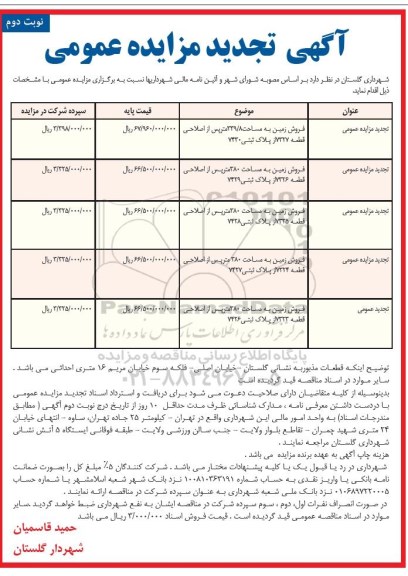 نوبت دوم
آگهی تجدید مزایده عمومی
شهرداری گلستان در نظر دارد بر اساس مصوبه شورای شهر و آئین نامه مالی شهرداریها نسبت به برگزاری مزایده عمومی با مشخصات
ذیل اقدام نماید.
عنوان موضوع قیمت پایه سپرده شرکت در مزایده
تجدید مزایده عمومی فروش زمین به مساحت ۳۳۹/۸مترپس از اصلاحی ۶۷/۹۶۰/۰۰۰/۰۰۰ ریال ۳/۳۹۸/۰۰۰/۰۰۰ ریال
قطعه ۷۳۲۷از پلاک ثبتی ۷۴۳۰
تجدید مزایده عمومی فروش زمین به مساحت ۳۸۰مترپس از اصلاحی ۶۶/۵۰۰/۰۰۰/۰۰۰ ریال ۳/۳۲۵/۰۰۰/۰۰۰ ریال
قطعه ۷۳۲۶از پلاک ثبتی ۷۴۲۹
تجدید مزایده عمومی فروش زمین به مساحت ۳۸۰مترپس از اصلاحی ۶۶/۵۰۰/۰۰۰/۰۰۰ ریال ۳/۳۲۵/۰۰۰/۰۰۰ ریال
قطعه ۷۳۲۵از پلاک ثبتی ۷۴۲۸
تجدید مزایده عمومی فروش زمین به مساحت ۳۸۰مترپس از اصلاحی ۶۶/۵۰۰/۰۰۰/۰۰۰ ریال ۳/۳۲۵/۰۰۰/۰۰۰ ریال
قطعه ۷۳۲۴از پلاک ثبتی ۷۴۲۷
تجدید عمومی فروش زمین به مساحت ۳۸۰مترپس از اصلاحی ۶۶/۵۰۰/۰۰۰/۰۰۰ ریال ۳/۳۲۵/۰۰۰/۰۰۰ ریال
قطعه ۷۳۲۳از پلاک ثبتی ۷۴۲۶
مرکز فرآوری اطلاعات پارس نماد داده ها
پایگاه اطلاع رسانی مناقصه و مزایده
توضیح اینکه قطعات مذبوربه نشانی گلستان -خیابان اصلی- فلکه سوم خیابان مریم ۱۶ متری احداثی می باشد .
سایر موارد در اسناد مناقصه قید گردیده است
بدینوسیله از کلیه متقاضیان دارای صلاحیت دعوت می شود برای دریافت و استرداد اسناد تجدید مزایده عمومی
با دردست داشتن معرفی نامه ، مدارک شناسائی ظرف مدت حداقل ۱۰ روز از تاریخ درج نوبت دوم آگهی ( مطابق
مندرجات اسناد) به واحد امور مالی این شهرداری واقع در تهران - کیلومتر ۲۵ جاده تهران، ساوه - انتهای خیابان
۲۴ متری شهید چمران - تقاطع بلوار ولایت - جنب سالن ورزشی ولایت - طبقه فوقانی ایستگاه ۵ آتش نشانی
شهرداری گلستان مراجعه نمایند .
هزینه چاپ آگهی به عهده برنده مزایده می باشد .
شهرداری در رد یا قبول یک یا کلیه پیشنهادات مختار می باشد . شرکت کنندگان ۵٪ مبلغ کل را بصورت ضمانت
نامه بانکی یا واریز نقدی به حساب شماره ۱۰۰۸۱۰۳۶۳۱۹۱ نزد بانک شهر شعبه اسلامشهر یا شماره حساب
۰۱۰۶۸۹۷۲۲۰۰۵ نزد بانک ملی شعبه شهرداری به عنوان سپرده شرکت در مناقصه ارائه نمایند .
در صورت انصراف نفرات اول، دوم ، سوم سپرده شرکت در مناقصه ایشان به نفع شهرداری ضبط خواهد گردید سایر
موارد در اسناد مناقصه عمومی قید گردیده است . قیمت فروش اسناد ۳/۰۰۰/۰۰۰ ریال می باشد
حمید قاسمیان
شهردار گلستان